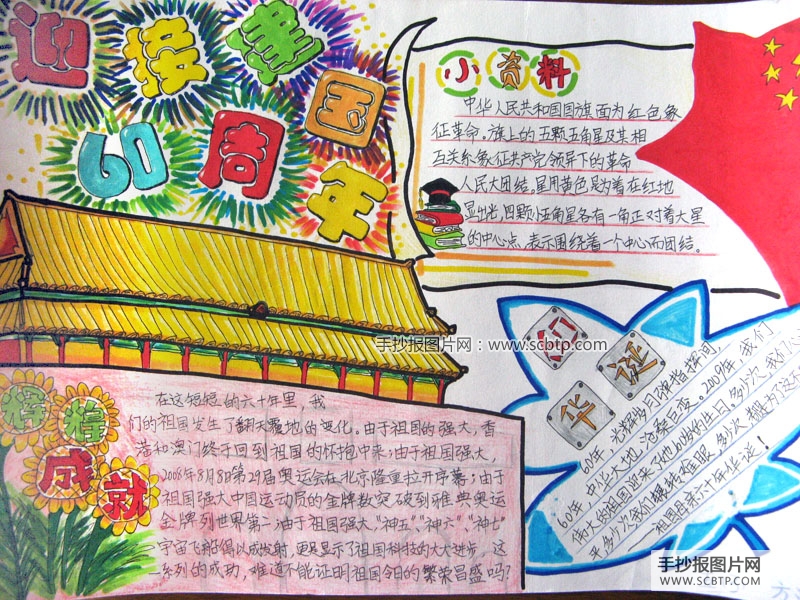 迎接建国
60周年
小资料
中华人民共和国国旗面为红色象
征革命。旗上的五颗五角星及其相
互关系象征共产党领导下的革命
人民大团结。星用黄色是为着在红地
显出光,四颗小五角星各有一角正对着大星
的中心点,表示围绕着一个中心而团结。
手抄报图片网:www.scbtp.com
辉煌
成就
在这短短的六十年里,我
们的祖国发生了翻天覆地的变化。由于祖国的强大,香
港和澳门终于回到祖国的怀抱中来;由于祖国强大,
2008年8月8日第29届奥运会在北京隆重拉开序幕;由于
祖国强大中国运动员的金牌数突破到雅典奥运
金牌列世界第一;由于祖国强大"神五""神六""神七"
宇宙飞船得以成发射,更显示了祖国科技的大大进步。这
一系列的成功,难道不能证明祖国今日的繁荣昌盛吗?
华诞
60年,光辉岁月弹指挥间,
60年,中华大地,沧桑巨变。2009年,我们
伟大的祖国迎来了她60岁的生日。多少次,我们心
多少次,我们
祖国母亲六十年华诞!
手抄报图片网
WWW.SCBTP.COM